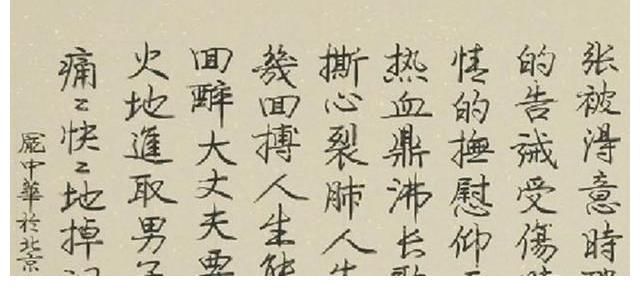 张被得意時
的告誡受傷
情的撫慰仰
热血鼎沸长歌
撕心裂肺人生
幾回搏人生能
回醉大丈夫要
火地進取男子
痛〻快〻地掉
龐中華於北京